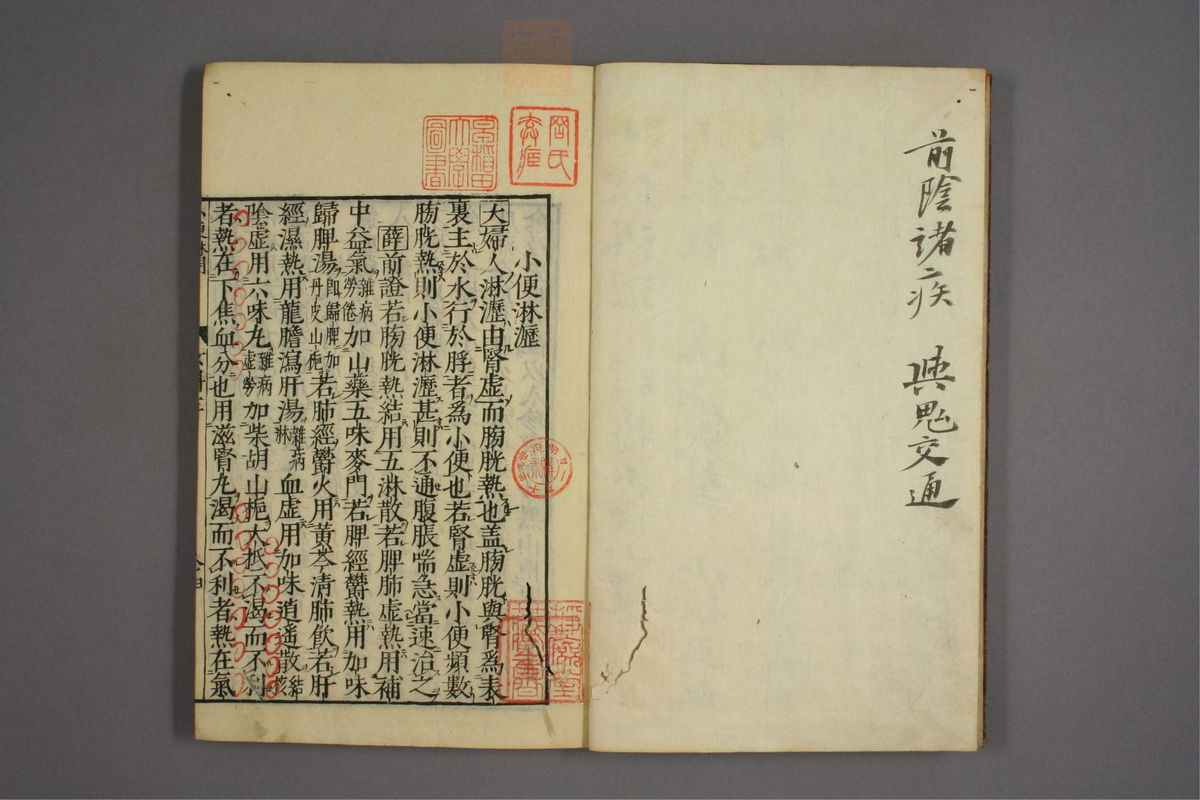 前陰諸疾 與鬼交通
小便淋瀝
大婦人淋瀝由腎虚而膀胱熱也盖膀胱與腎爲表
裏主於水行於脬者爲小便也若腎虚則小便頻數
膀胱熱則小便淋瀝甚則不通腹脹喘急當速治之
薛前證若膀胱熱結用五淋散若脾肺虚熱用補
中益氣雜病勞倦加山藥五味麥門若脾經欝熱用加味
歸脾湯即歸脾加丹皮山梔若肺經欝火用黃芩清肺飲若肝
經濕熱用龍膽瀉肝湯雜病淋血虚用加味逍遥散結核
陰虚用六味丸雜病虚勞加柴胡山梔大抵不渴而不利
者熱在下焦血分也用滋腎丸渴而不利者熱在氣
早稻田大學圖書